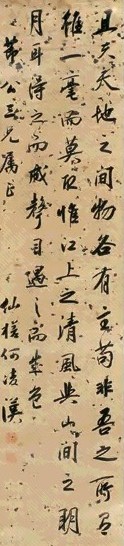 且夫天地之間物各有主苟非吾之所有
雖一毫而莫取惟江上之清風與山間之明
月耳得之而成聲目遇之而成色
公三兄屬正
仙槎何凌漢